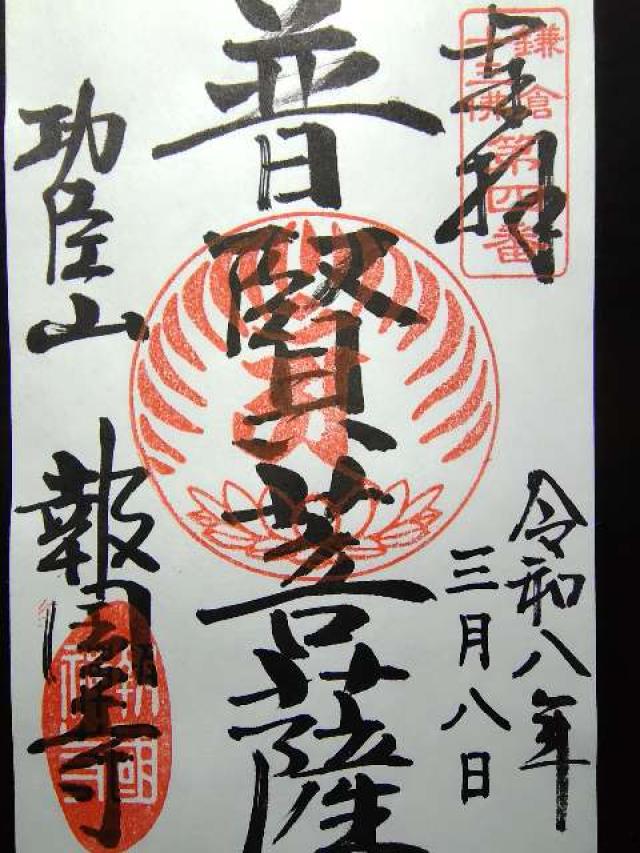 奉拝
鎌倉
十三佛
第四番
令和八年
三月八日
普賢菩薩
功臣山
報国寺